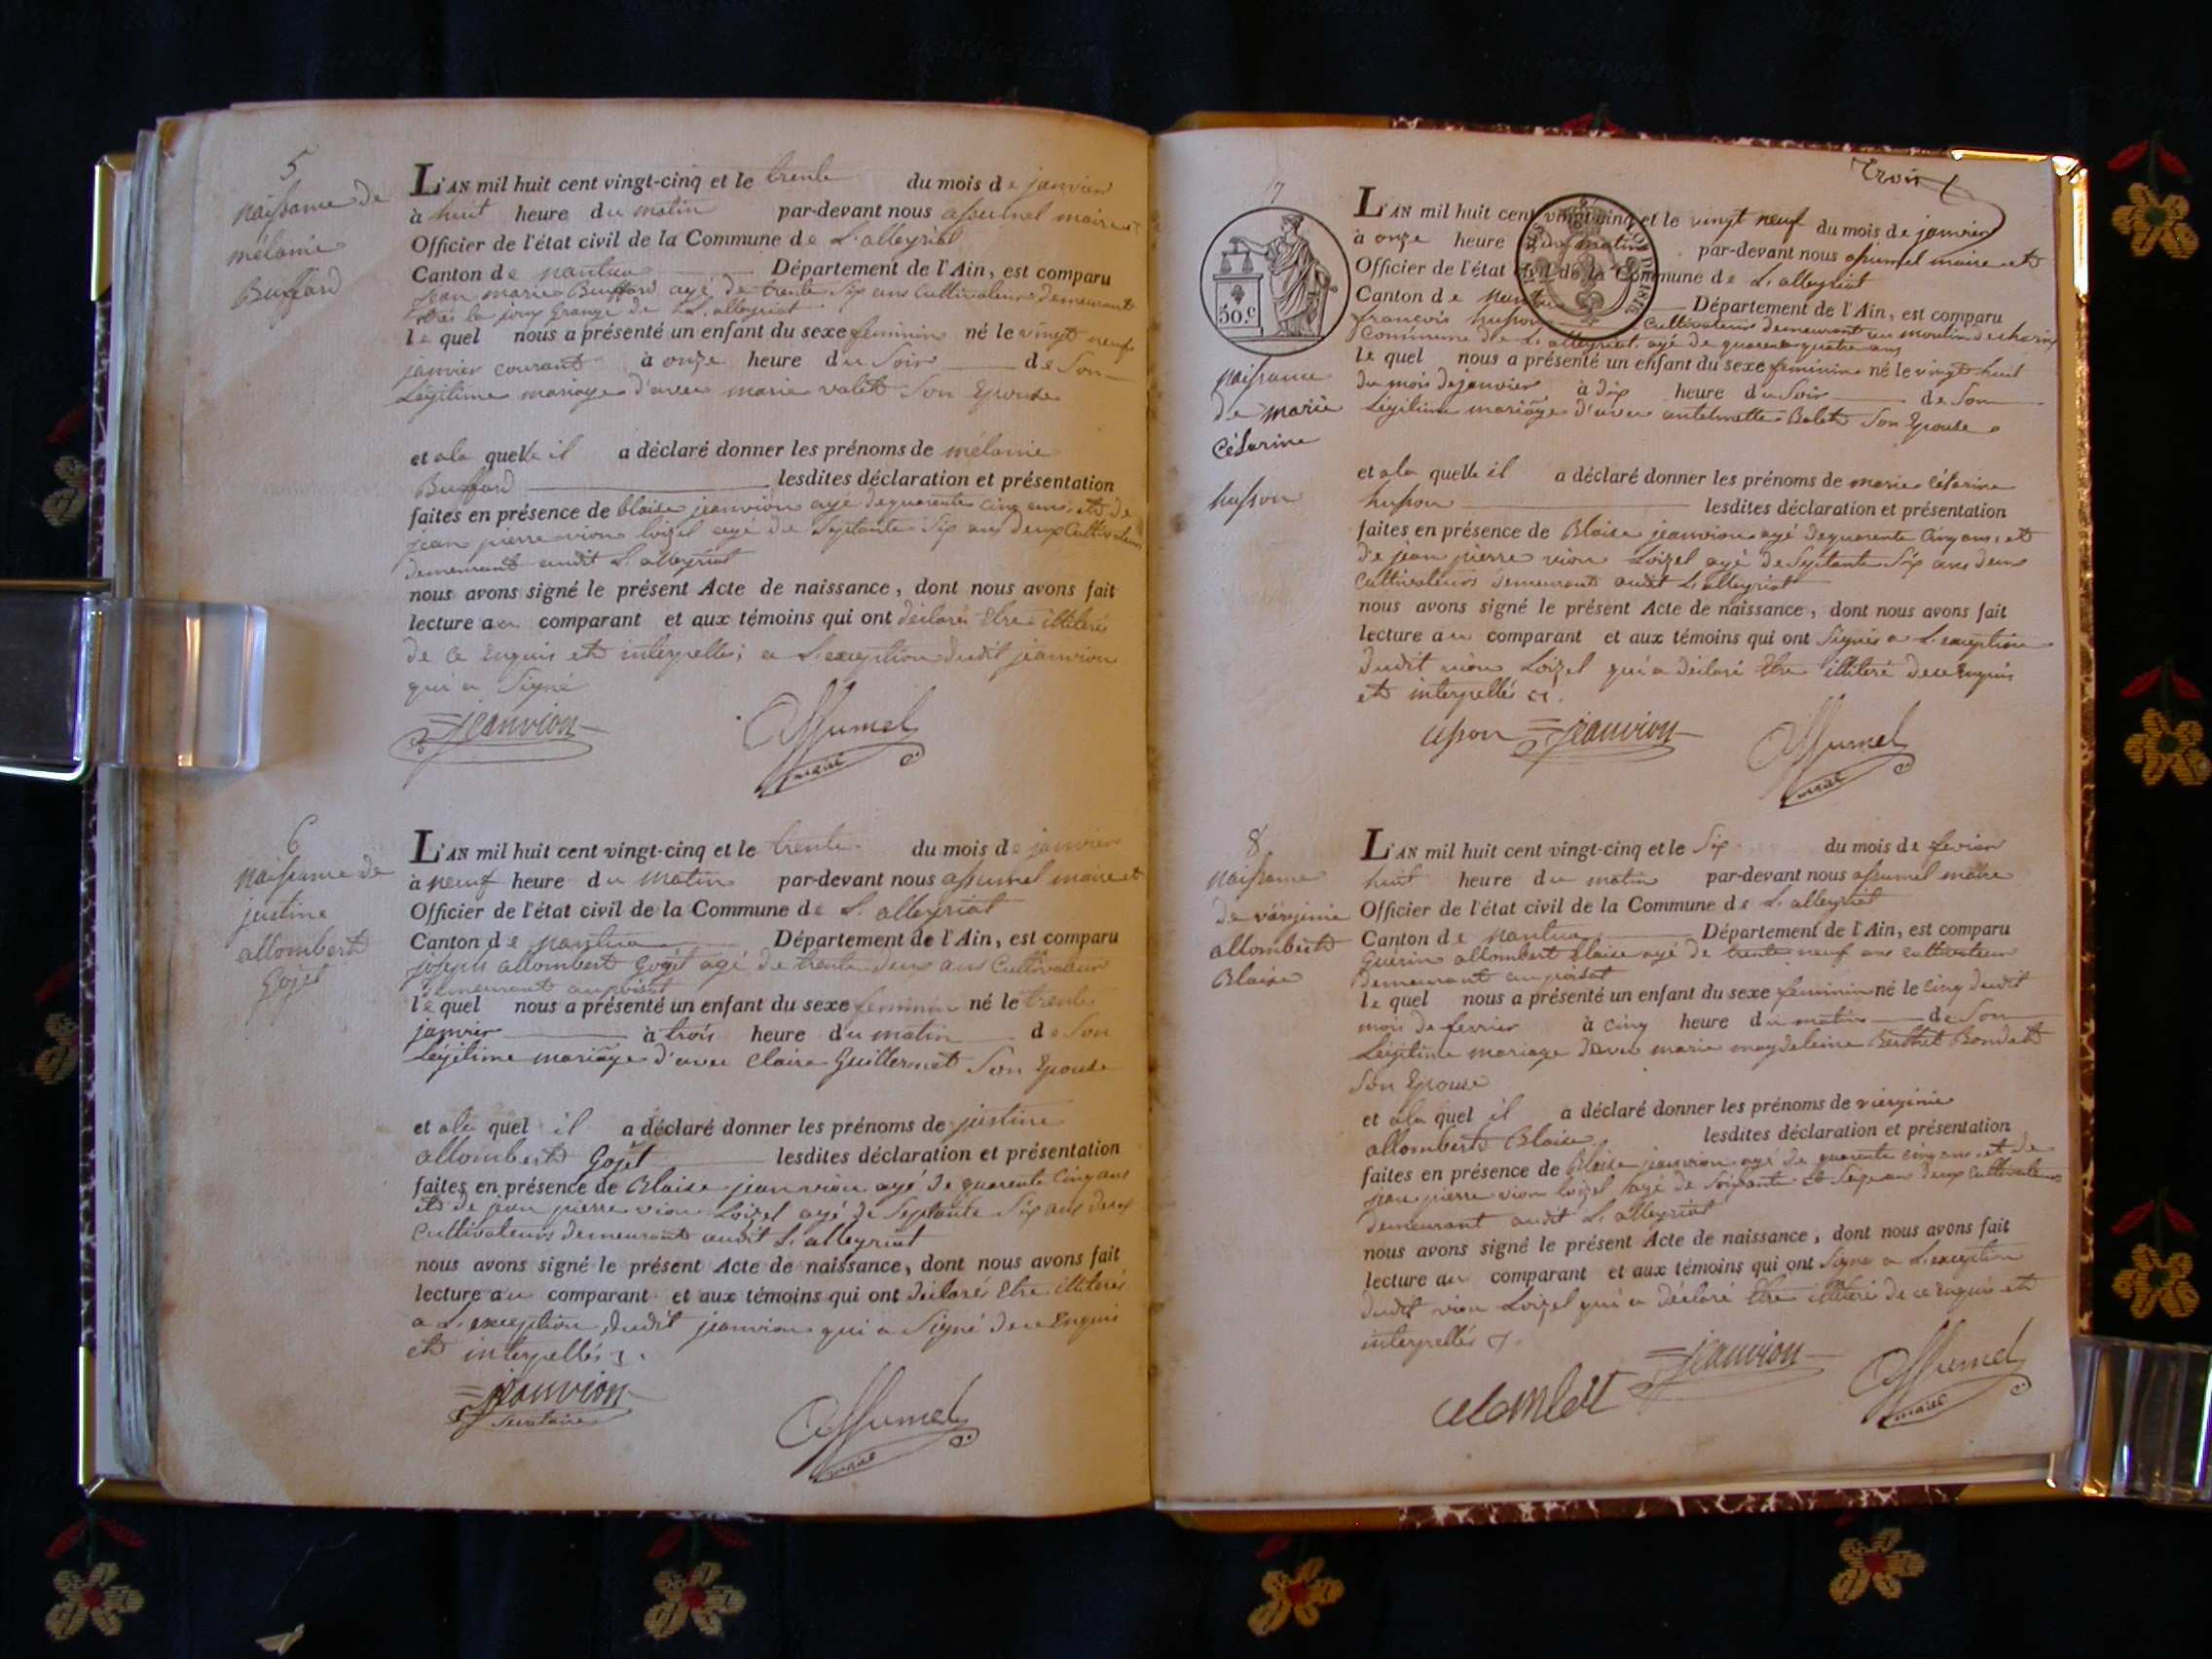 5
naissance de
mélanie
Buffard
L'AN mil huit cent vingt-cinq et le trente du mois de janvier
à huit heure du matin par-devant nous assumel maire et
Officier de l'état civil de la Commune de L'alleyriat
Canton de nantua Département de l'Ain, est comparu
jean marie Buffard agé de trente Six ans Cultivateur demeurant
La grange de L'alleyriat
le quel nous a présenté un enfant du sexe feminin né le vingt neuf
janvier courant à onze heure du Soir de Son
Légitime mariage d'avec marie valet Son Epouse
et a la quelle il a déclaré donner les prénoms de mélanie
Buffard lesdites déclaration et présentation
faites en présence de blaise jeanvion agé de quarente cinq ans, et de
jean pierre vion loizel agé de Septante Six ans deux Cultivateurs
demeurant audit L'alleyriat
nous avons signé le présent Acte de naissance, dont nous avons fait
lecture au comparant et aux témoins qui ont déclarés Etre illiterés
de ce Enquis et interpellés a L'exception dudit jeanvion
qui a Signé
jeanvion
Assumel
maire
6
naissance de
justine
allombert
Gojet
L'AN mil huit cent vingt-cinq et le trente du mois de janvier
à neuf heure du matin par-devant nous assumel maire et
Officier de l'état civil de la Commune de L'alleyriat
Canton de nantua Département de l'Ain, est comparu
joseph allombert Gojet agé de trente deux ans Cultivateur
demeurant au poisat
le quel nous a présenté un enfant du sexe feminin né le trente
janvier à trois heure du matin de Son
Légitime mariage d'avec Claire Guillermet Son Epouse
et a la quel il a déclaré donner les prénoms de justine
allombert Gojet lesdites déclaration et présentation
faites en présence de Blaise jeanvion agé de quarente Cinq ans
et de jean pierre vion Loizel agé de Septante Six ans deux
Cultivateurs demeurant audit L'alleyriat
nous avons signé le présent Acte de naissance, dont nous avons fait
lecture au comparant et aux témoins qui ont déclarés Etre illiterés
a L'exception dudit jeanvion qui a Signé de ce Enquis
et interpellés
jeanvion
Secretaire
Assumel
maire
trois
7
50.c
1816
naissance
de marie
Césarine
husson
L'AN mil huit cent vingt-cinq et le vingt neuf du mois de janvier
à onze heure du matin par-devant nous assumel maire et
Officier de l'état civil de la Commune de L'alleyriat
Canton de nantua Département de l'Ain, est comparu
françois husson Cultivateur demeurant au moulin de charix
Commune de L'alleyriat, agé de quarente quatre ans
le quel nous a présenté un enfant du sexe feminin né le vingt huit
du mois de janvier à dix heure du Soir de Son
Légitime mariage d'avec antelmette Balet Son Epouse
et a la quelle il a déclaré donner les prénoms de marie césarine
husson lesdites déclaration et présentation
faites en présence de Blaise jeanvion agé de quarente Cinq ans, et
de jean pierre vion Loizel agé de Septante Six ans deux
Cultivateurs demeurant audit L'alleyriat
nous avons signé le présent Acte de naissance, dont nous avons fait
lecture au comparant et aux témoins qui ont Signés a L'exception
dudit vion Loizel qui a déclaré Etre illiteré de ce Enquis
et interpellés
upson jeanvion
Assumel
maire
8
naissance
de viérginie
allombert
Blaise
L'AN mil huit cent vingt-cinq et le Six du mois de fevrier
huit heure du matin par-devant nous assumel maire
Officier de l'état civil de la Commune de L'alleyriat
Canton de nantua Département de l'Ain, est comparu
Guerin allombert blaise agé de trente neuf ans cultivateur
demeurant au poisat
le quel nous a présenté un enfant du sexe feminin né le cinq dudit
mois de fevrier à cinq heure du matin de Son
Légitime mariage d'avec marie magdeleine Berthet Bondet
Son Epouse
et a la quel il a déclaré donner les prénoms de viérginie
allombert Blaise lesdites déclaration et présentation
faites en présence de Blaise jeanvion agé de quarente cinq ans, et de
jean pierre vion loizel agé de Soixante et Seize ans deux Cultivateurs
demeurant audit L'alleyriat
nous avons signé le présent Acte de naissance, dont nous avons fait
lecture au comparant et aux témoins qui ont Signé a L'exception
dudit vion Loizel qui a déclaré Etre illiteré de ce Enquis et
interpellés
jeanvion
Assumel
maire